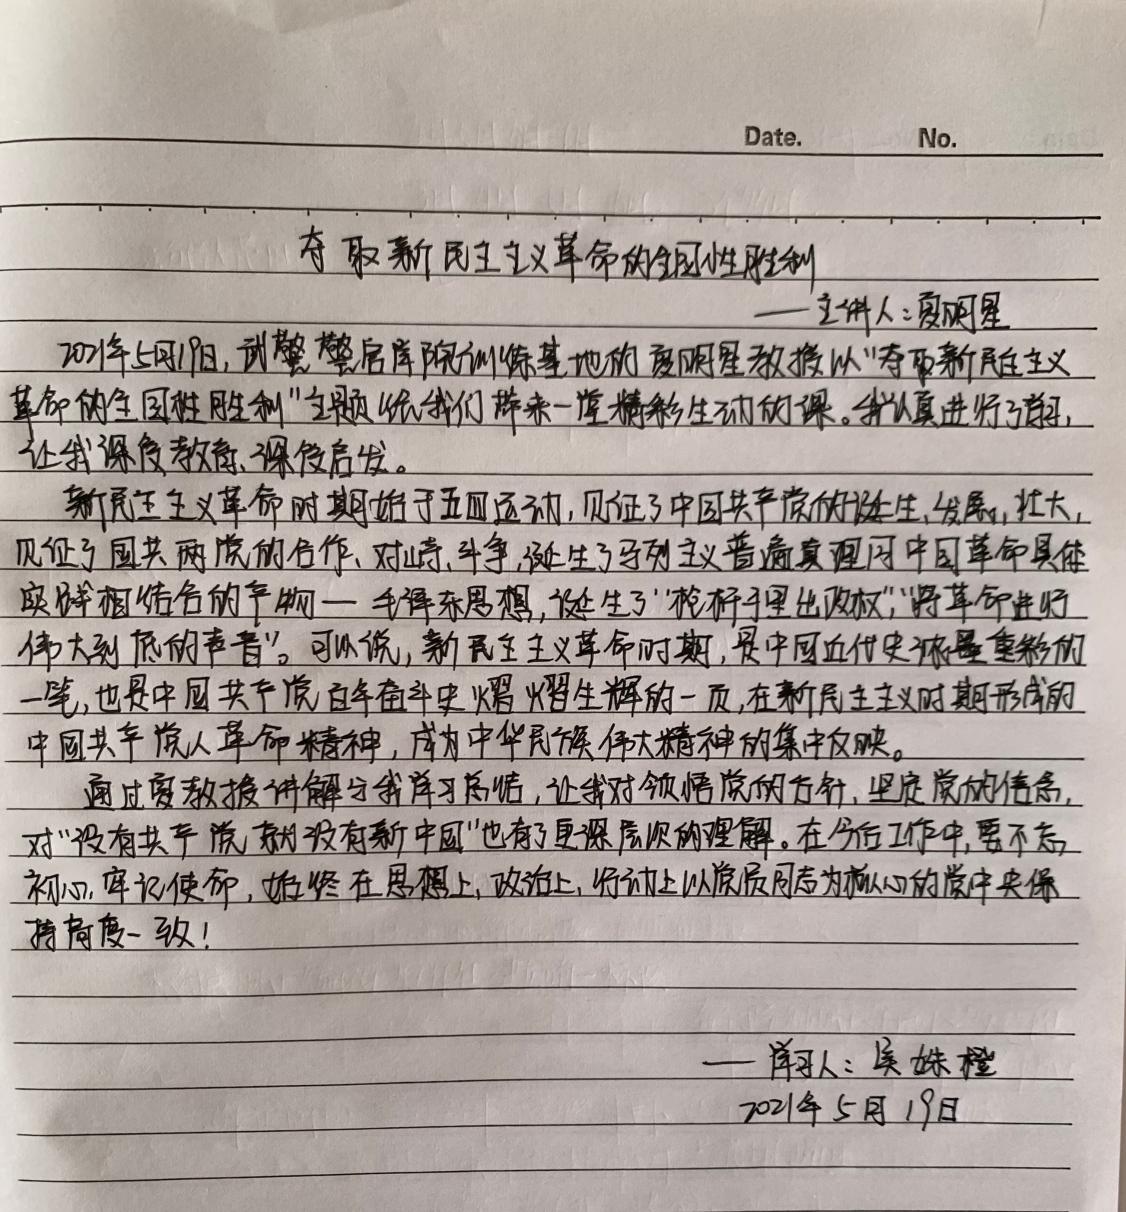 Date. No.
夺取新民主主义革命的全国性胜利
——主讲人：夏明星
2021年5月19日，武警警官学院训练基地的夏明星教授以“夺取新民主主义
革命的全国性胜利”主题给我们带来一堂精彩生动的课。我认真进行了学习，
让我深受教育、深受启发。
新民主主义革命时期始于五四运动，见证了中国共产党的诞生、发展、壮大，
见证了国共两党的合作、对峙、斗争，诞生了马列主义普遍真理同中国革命具体
实践相结合的产物—毛泽东思想，诞生了“枪杆子里出政权”，“将革命进行
伟大到底的声音”。可以说，新民主主义革命时期，是中国近代史浓墨重彩的
一笔，也是中国共产党百年奋斗史熠熠生辉的一页，在新民主主义时期形成的
中国共产党人革命精神，成为中华民族伟大精神的集中反映。
通过夏教授讲解与我学习总结，让我对领悟党的方针、坚定党的信念，
对“没有共产党就没有新中国”也有了更深层次的理解。在今后工作中，要不忘
初心，牢记使命，始终在思想上，政治上，行动上以党员同志为核心的党中央保
持高度一致！
——学习人：侯姝橙
2021年5月19日